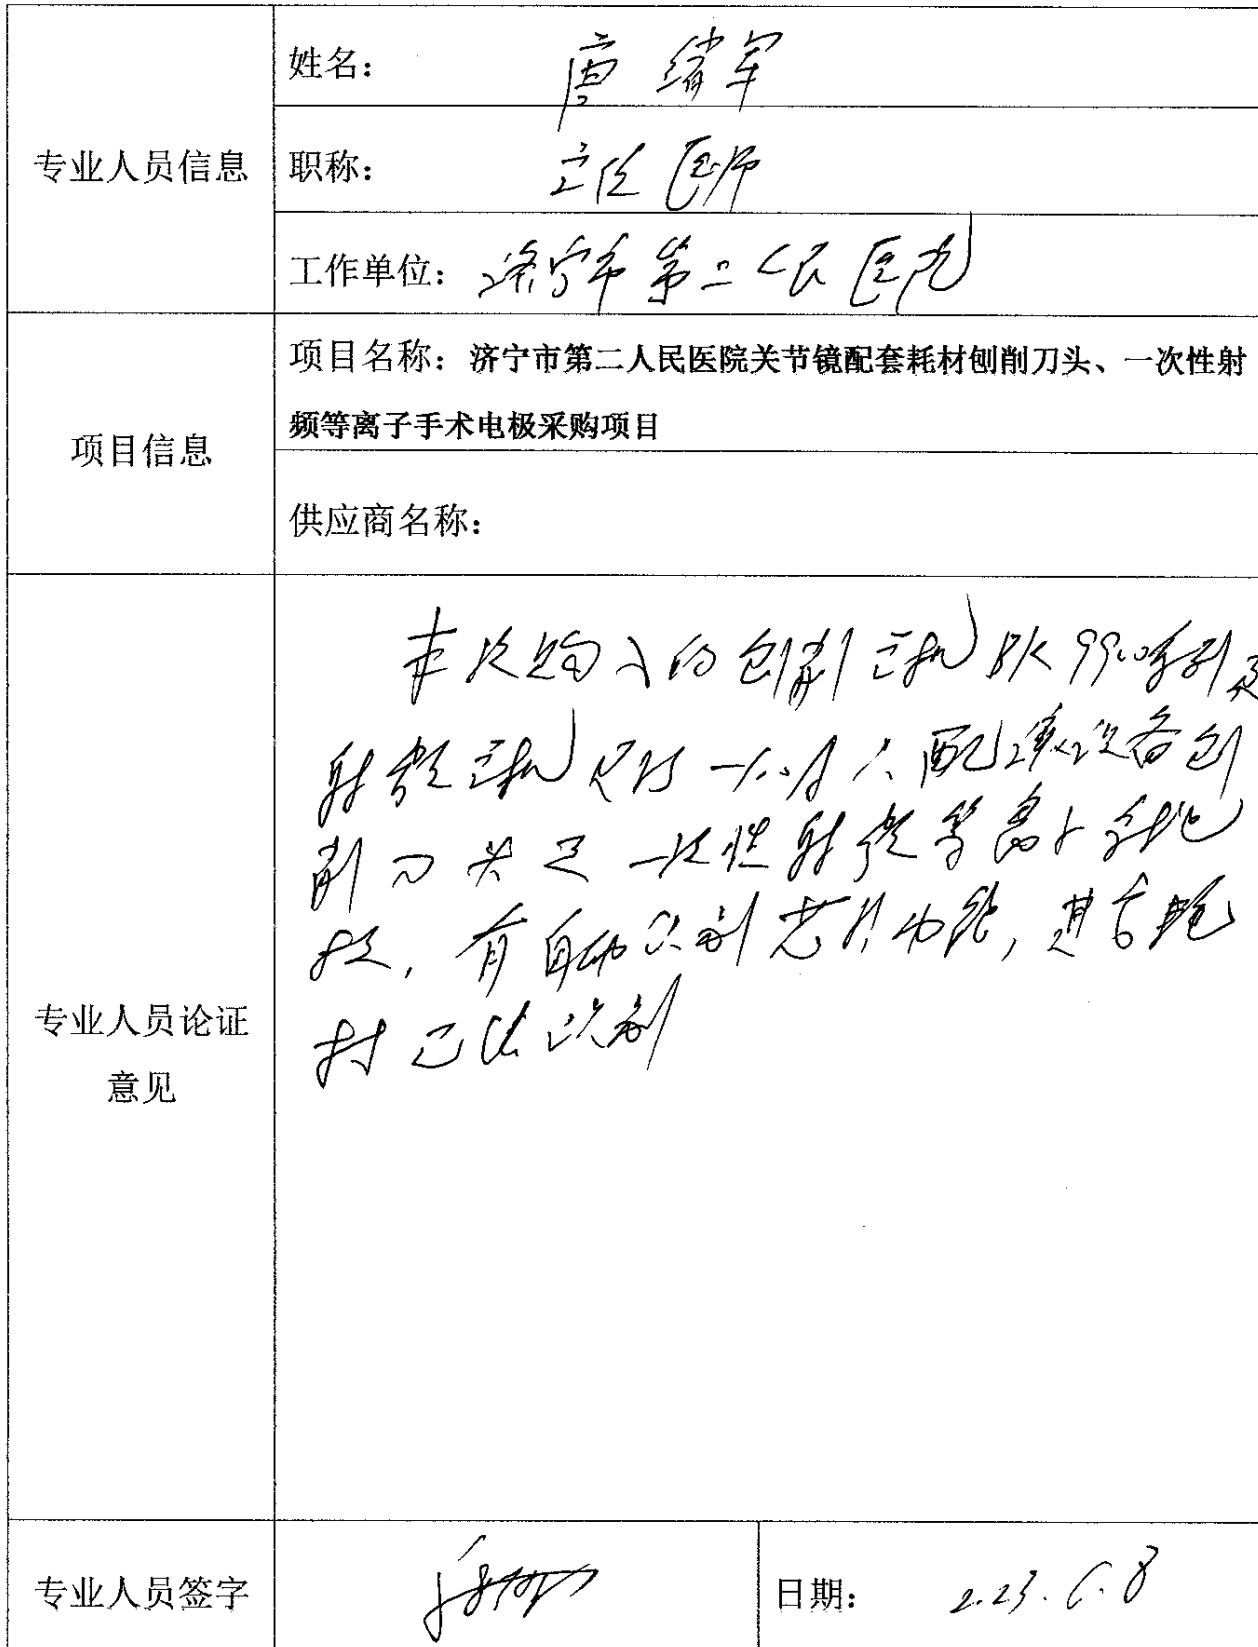 专业人员信息
姓名：唐绪军
职称：主任医师
工作单位：济宁市第二人民医院
项目信息
项目名称：济宁市第二人民医院关节镜配套耗材刨削刀头、一次性射
频等离子手术电极采购项目
供应商名称：
专业人员论证
意见
本次购入的刨削主机 系列及
射频主机 配套设备刨
削刀头及一次性射频等离子手术电
极，有自动识别芯片功能，其它耗
材无法识别
专业人员签字
日期：2023.6.8